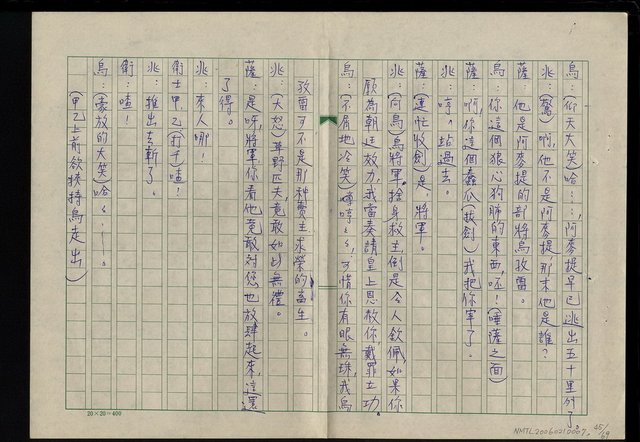 烏：（仰天大笑）哈……，阿麥提早已逃出五十里外了。
兆：（驚）啊，他不是阿麥提，那末他是誰？
薩：他是阿麥提的部將烏孜雷。
烏：你這個狼心狗肺的東西，呸！（唾薩之面）
薩：啊，你這個蠢瓜（拔劍）我把你宰了。
兆：哼，站過去。
薩：（連忙收劍）是，將軍。
兆：（向烏）烏將軍，捨身救主，倒是令人欽佩，如果你
願為朝廷效力，我當奏請皇上恩赦你，戴罪立功。
烏：（不屑地冷笑）哼哼々々，可惜你有眼無珠，我烏
孜雷可不是那种賣主求榮的畜生。
兆：（大怒）草野匹夫，竟敢如此無禮。
薩：是呀，將軍你看他竟敢對您也放肆起來，這還
了得。
兆：來人哪！
衛士甲、乙：（打千）喳！
兆：推出去斬了。
衛：喳！
烏：（豪放的大笑）哈々……。
（甲乙上前欲挾持烏走出）
20×20=400
NMTL20060210007,
45/69